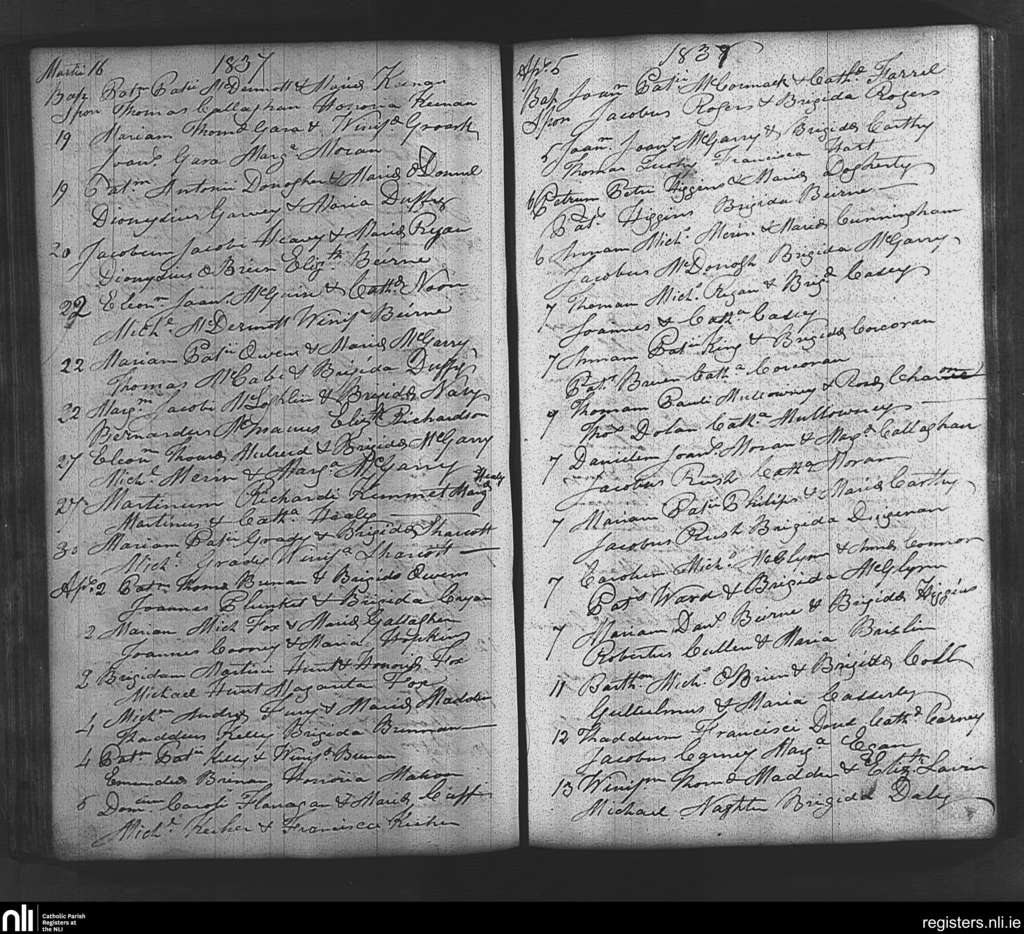 Martii 16 1837
Bap Patm Patii McDermott & Mariæ Keenan
Spon Thomas Callaghan Honoria Keenan
19 Mariam Thomæ Gara & Winifdæ Groark
Joans Gara Marga Moran
19 Patm Antonii Donogher & Mariæ O Donnel
Dionysius Garvey & Maria Duffy
20 Jacobum Jacobi Heavey & Mariæ Regan
Dionysius O Brien Elizth Beirne
22 Eleonm Joans McGuire & Cathæ Noon
Michl McDermott Winifa Beirne
22 Mariam Patii Owens & Mariæ McGarry
Thomas McCabe & Brigida Duffy
22 Margm Jacobi McLoghlin & Brigidæ Nary
Bernardus Elizth Richardson
27 Eleonm Thomæ & Brigidæ McGarry
Michl & Marga McGarry
27 Martinum Richardi Kimmet Marg Healy
Martinus & Catha Healy
30 Mariam Patii Grady & Brigidæ Sharcott
Michl Grady Winifa Sharcott
Apr 2 Patm Thomæ & Brigidæ Owens
Joannes Plunket & Brigida
2 Mariam Mich Fox & Mariæ Gallagher
Joannes Cooney & Maria Hopkins
2 Brigidam Martini Hunt & Honoriæ Fox
Michael Hunt Margarita Fox
4 Michm Andreæ & Mariæ Madden
Thaddeus Kelly Brigida
4 Patm Patii Kelly & Winifdæ
Emundus Brenan Honoria Mahon
5 Domcum Caroli Flanagan & Mariæ Cuffe
Michl & Francisca
Apr 5 1837
Bap Joanm Patii McCormack & Cathæ Farrel
Spon Jacobus Rogers & Brigida Rogers
5 Joanm Joans McGarry & Brigidæ Carthy
Thomas Francisca Hart
6 Petrum Petri Higgins & Mariæ Dogherty
Pats Higgins Brigida Beirne
6 Annam Michl & Mariæ Cunningham
Jacobus McDonogh Brigida McGarry
7 Thomam Michl Regan & Brigd Casey
Joannes & Catha Casey
7 Annam Patii King & Brigidæ Corcoran
Pats Catha Corcoran
9 Thomam Pauli Mullowney & Rosæ
Thos Dolan Catha Mullowney
7 Danielem Joans Moran & Marga Callaghan
Jacobus Rush Catha Moran
7 Mariam Patii Philips & Mariæ Carthy
Jacobus Rush Brigida
7 Michl McGlynn & Annæ Connor
Pats Ward & Brigida McGlynn
7 Mariam Danl Beirne & Brigidæ Higgins
Robertus Cullen & Maria
11 Bartm Michl OBrien & Brigidæ
Gulielmus & Maria Casserly
12 Thaddeum Francisci & Cathæ Carney
Jacobus Carney Marga Egan
13 Winifm Thomæ Madden & Elizth Lavin
Michael Naghten Brigida Daly
nli
Catholic Parish
Registers at
the NLI
registers.nli.ie